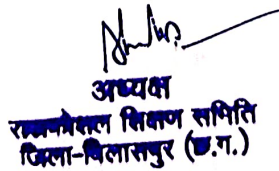 अध्यक्ष
शिक्षण समिति
जिला-बिलासपुर (छ.ग.)